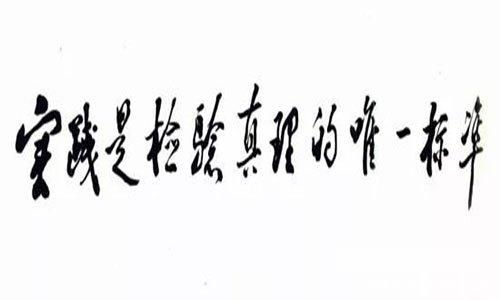 实践是检验真理的唯一标准